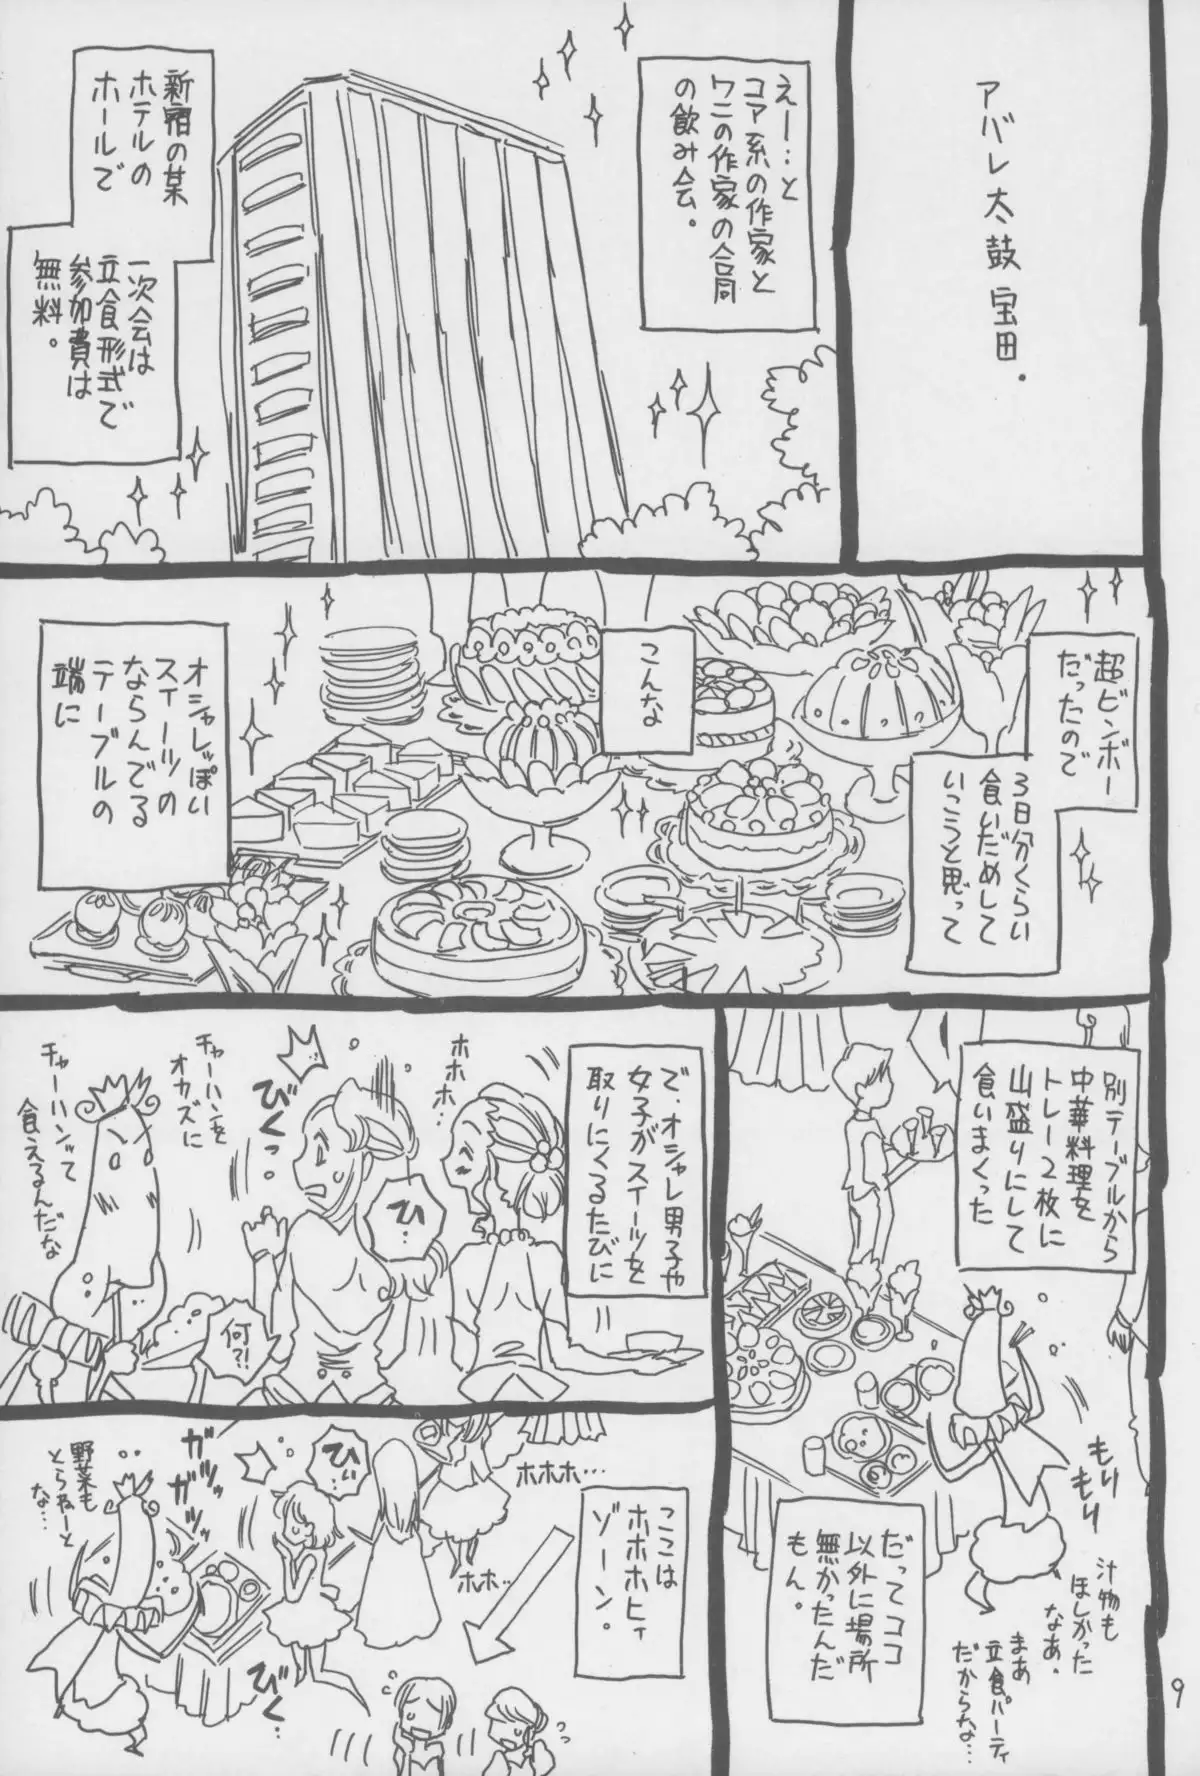 アバレ太鼓 宝田.
えー…と
コア系の作家と
ワニの作家の合同
の飲み会。
新宿の某
ホテルの
ホールで
一次会は
立食形式で
参加費は
無料。
超ビンボー
だったので
3日分くらい
食いだめして
いこうと思って
こんな
オシャレっぽい
スイーツの
ならんでる
テーブルの
端に
別テーブルから
中華料理を
トレー2枚に
山盛りにして
食いまくった
もり
もり
汁物も
ほしかった
なあ。
まあ
立食パーティ
だからな…
だってココ
以外に場所
無かったんだ
もん。
で、オシャレ男子や
女子がスイーツを
取りにくるたびに
ホホホ…
ひっ…
びくっ
チャーハンを
オカズに
チャーハンって
食えるんだな
何?!
ここは
ホホホヒィ
ゾーン。
ホホホ…
ホホ…
ひぃ…
ガッ
ガツガツ
びく…
野菜も
とらねーと
な…
9